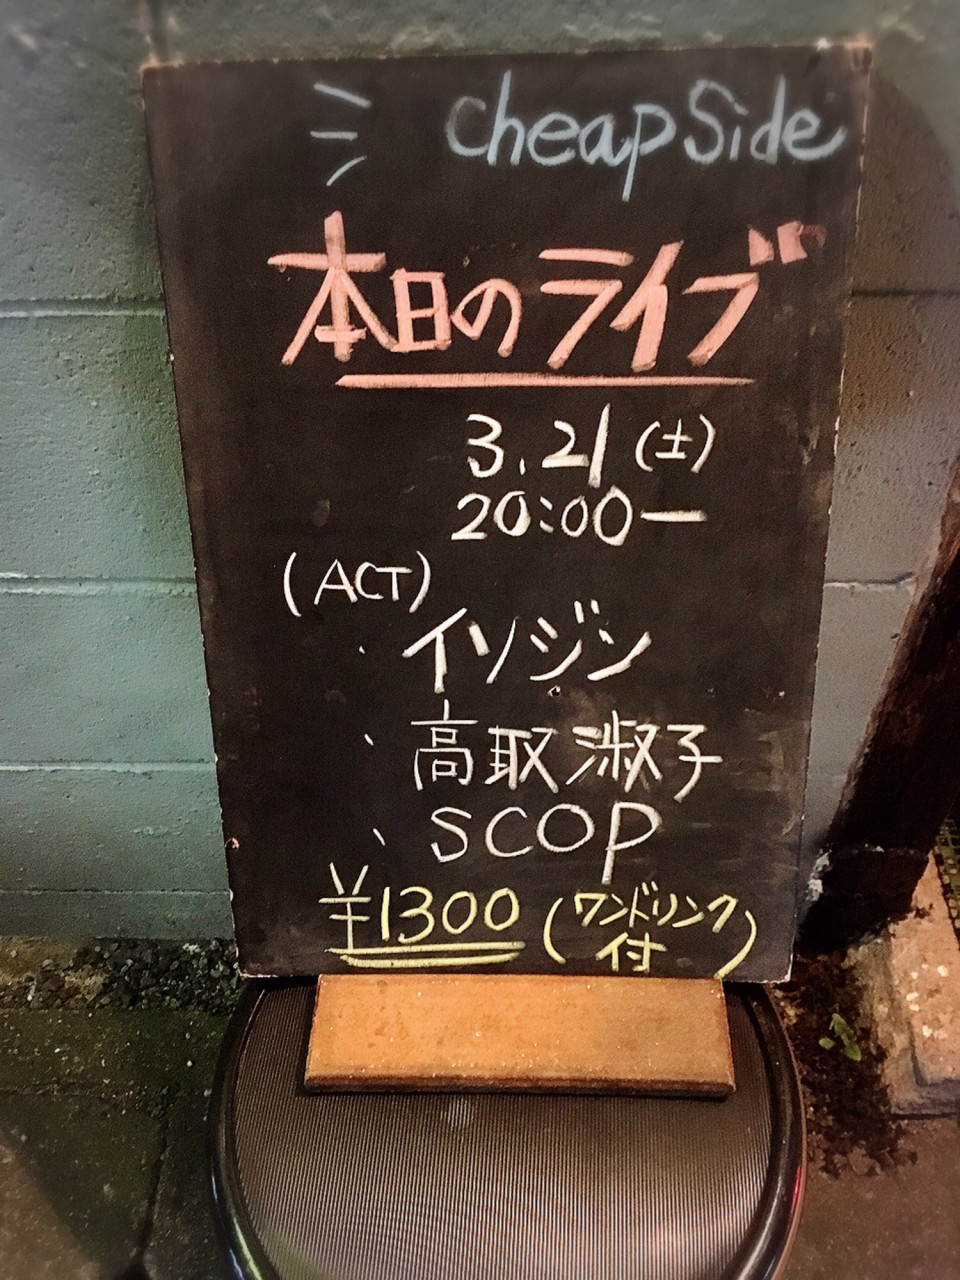 cheap Side
本日のライブ
3.21(土)
20:00ー
(ACT)
・イソジン
・高取淑子
・SCOP
¥1300(ワンドリンク
付)